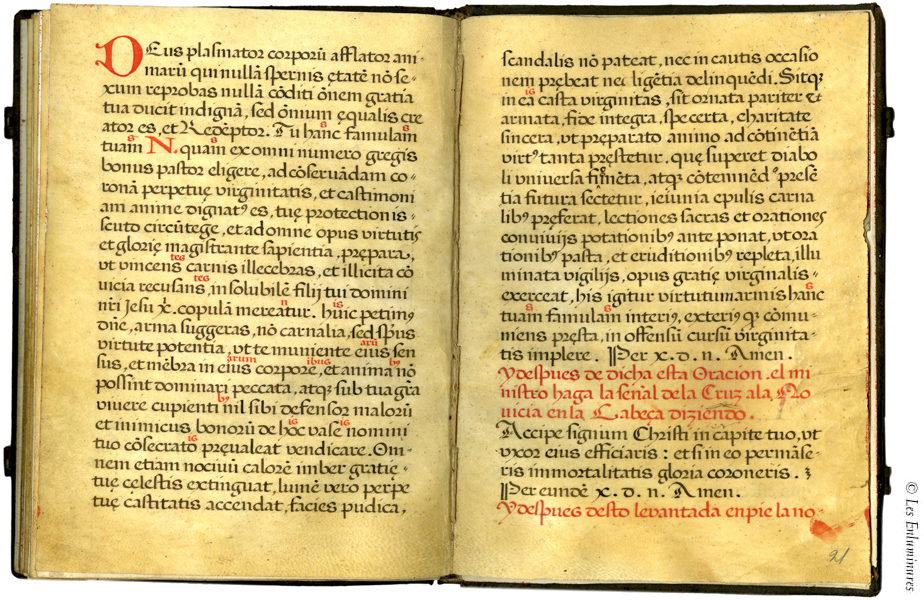 DEus plasmator corporū afflator ani-
marū qui nullā spernis ętatē nō se-
xum reprobas nullā cōditi ōnem gratia
tua ducit indignā, sed ōmium ęqualis cre
ator es, et Redēptor. Tu hanc famulam
s s
tuam N. quam ex omni numero gregis
s s
bonus pastor eligere, ad cōseruādam co-
ronā perpetuę virginitatis, et castimoni
am animę dignatꝰ es, tuę protectionis
scuto circūtege, et ad omne opus virtutis
et glorię magistrante sapientia, prępara,
vt vincens carnis illecebras, et illicita cō
tes
uicia recusans, in solubilē filij tui domini
tes
nr̄i Jesu x̄. copulā mereatur. huic petimꝰ
n is
dñe, arma suggeras, nō carnalia, sed sp̄us
virtute potentia, vt te muniente eius sen
arū
sus, et mēbra in eius corpore, et anima nō
arum ibus bꝰ
possint dominari peccata, atqꝫ sub tua gr̄a
viuere cupienti nil sibi defensor malorū
bꝰ
et inimicus bonorū de hoc vase nomini
is is
tuo cōsecrato pręualeat vendicare. Om-
is
nem etiam nociuū calorē imber gratię
tuę cęlestis extinguat, lumē vero perpe
tuę castitatis accendat, facies pudica,
scandalis nō pateat, nec in cautis occasio
nem prębeat nec ligētia delinquēdi. Sitqꝫ
in ea casta virginitas, sit ornata pariter et
is
armata, fide integra, spe certa, charitate
sincera, vt pręparato animo ad cōtinētiā
virtꝰ tanta pręstetur. quę superet diabo
li vniuersa figmēta, atqꝫ cōtemnēdo pręsē
tia futura sectetur, ieiunia epulis carna
libꝰ pręferat, lectiones sacras et orationes
conuiuijs potationibꝰ ante ponat, vt ora
tionibꝰ pasta, et eruditionibꝰ repleta, illu
minata vigilijs, opus gratię virginalis
exerceat, his igitur virtutum armis hanc
s
tuam famulam interiꝰ, exteriꝰ qꝫ cōmu-
s s
niens pręsta, in offensū cursū virginita-
tis implere. Per x. d. n. Amen.
Y despues de dicha esta Oracion. el mi
nistro haga la señal de la Cruz a la No
uicia en la Cabeça diziendo.
Accipe signum Christi in capite tuo, vt
vxor eius efficiaris: et si in eo permāse-
ris immortalitatis gloria coroneris.
Per eundē x. d. n. Amen.
Y despues desto levantada en pie la no
21
© Les Enluminures